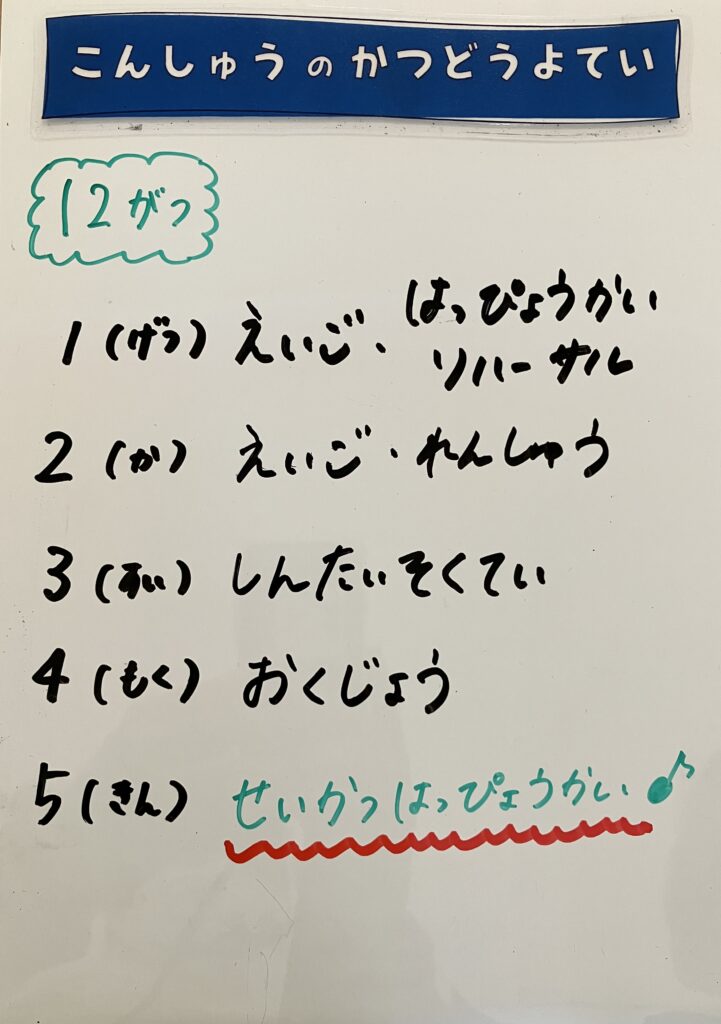 こんしゅうのかつどうよてい
12がつ
1(げつ) えいご・はっぴょうかい
リハーサル
2(か) えいご・れんしゅう
3(すい) しんたいそくてい
4(もく) おくじょう
5(きん) せいかつはっぴょうかい♪